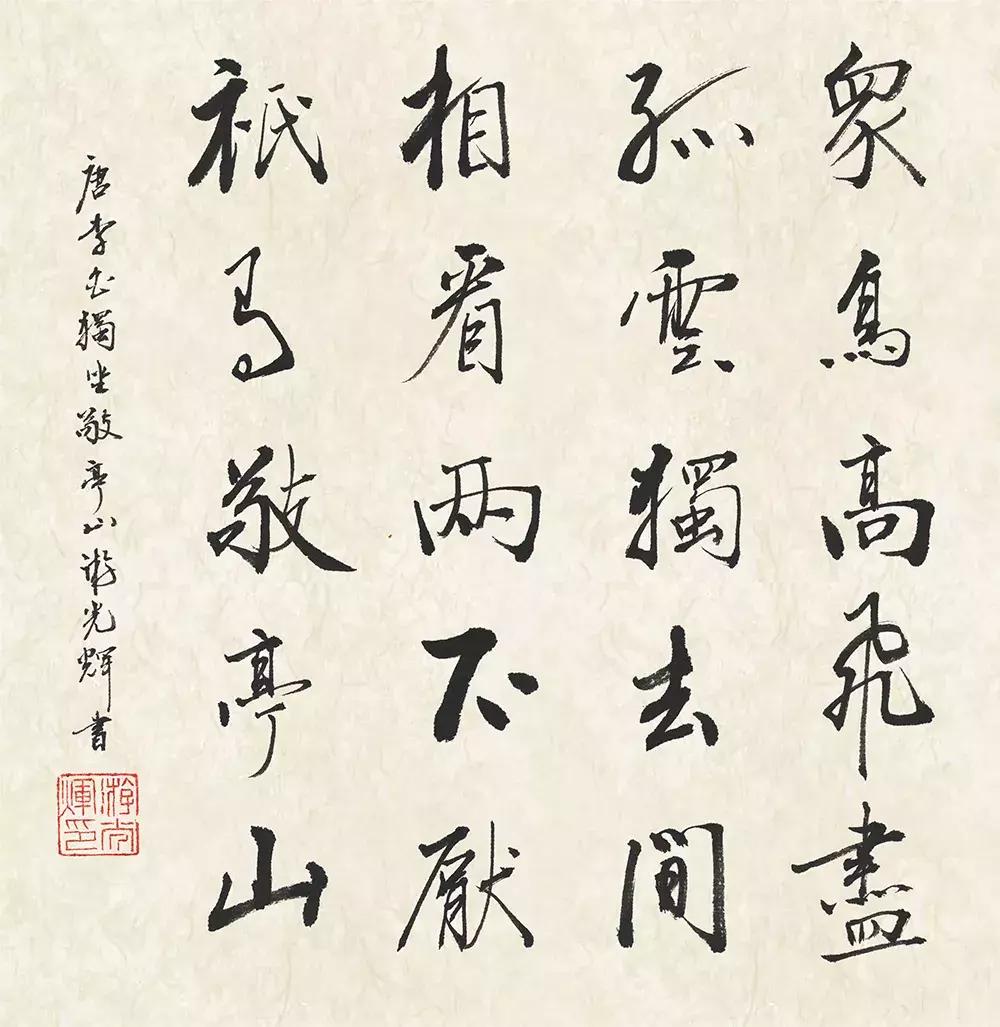 衆鳥高飛盡
孤雲獨去閒
相看兩不厭
祇有敬亭山
唐李白獨坐敬亭山游光輝書
游光輝印